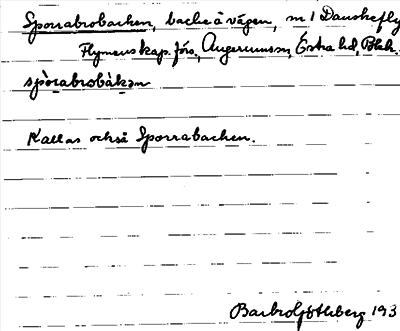 Sporrabrobacken, backe å vägen, m 1 Danskefly
Flymens kap. förs, Augerums sn, Östra hd, Blek.
spòrabrobàkən
Kallas också Sporrabacken.
Barbro Göthberg 193